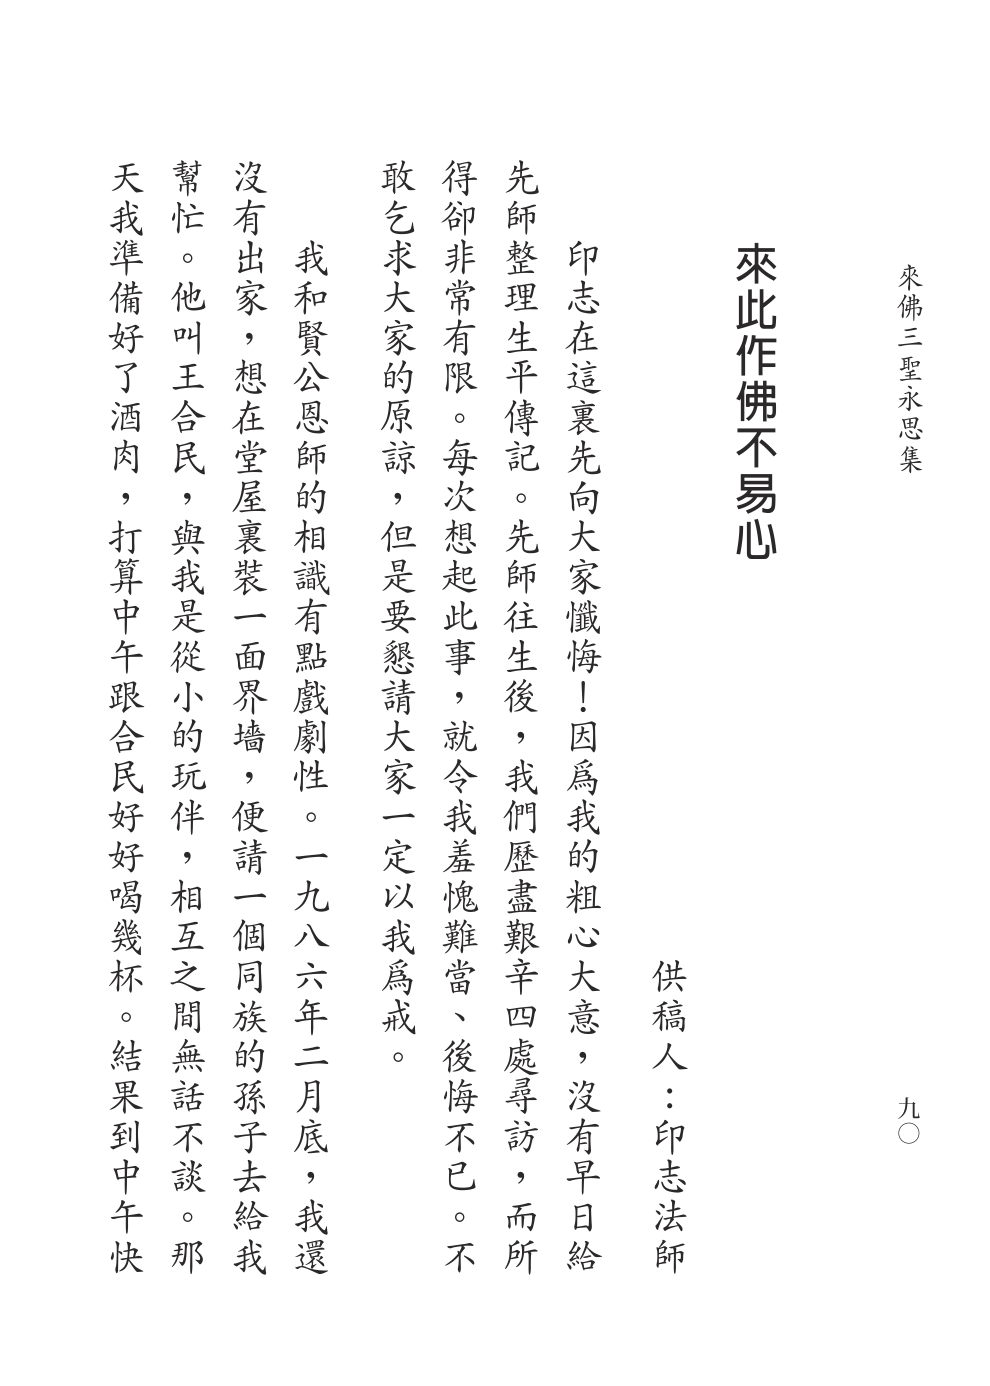 來佛三聖永思集
九〇
來此作佛不易心
供稿人：印志法師
印志在這裏先向大家懺悔！因爲我的粗心大意，沒有早日給
先師整理生平傳記。先師往生後，我們歷盡艱辛四處尋訪，而所
得卻非常有限。每次想起此事，就令我羞愧難當、後悔不已。不
敢乞求大家的原諒，但是要懇請大家一定以我爲戒。
我和賢公恩師的相識有點戲劇性。一九八六年二月底，我還
沒有出家，想在堂屋裏裝一面界墙，便請一個同族的孫子去給我
幫忙。他叫王合民，與我是從小的玩伴，相互之間無話不談。那
天我準備好了酒肉，打算中午跟合民好好喝幾杯。結果到中午快